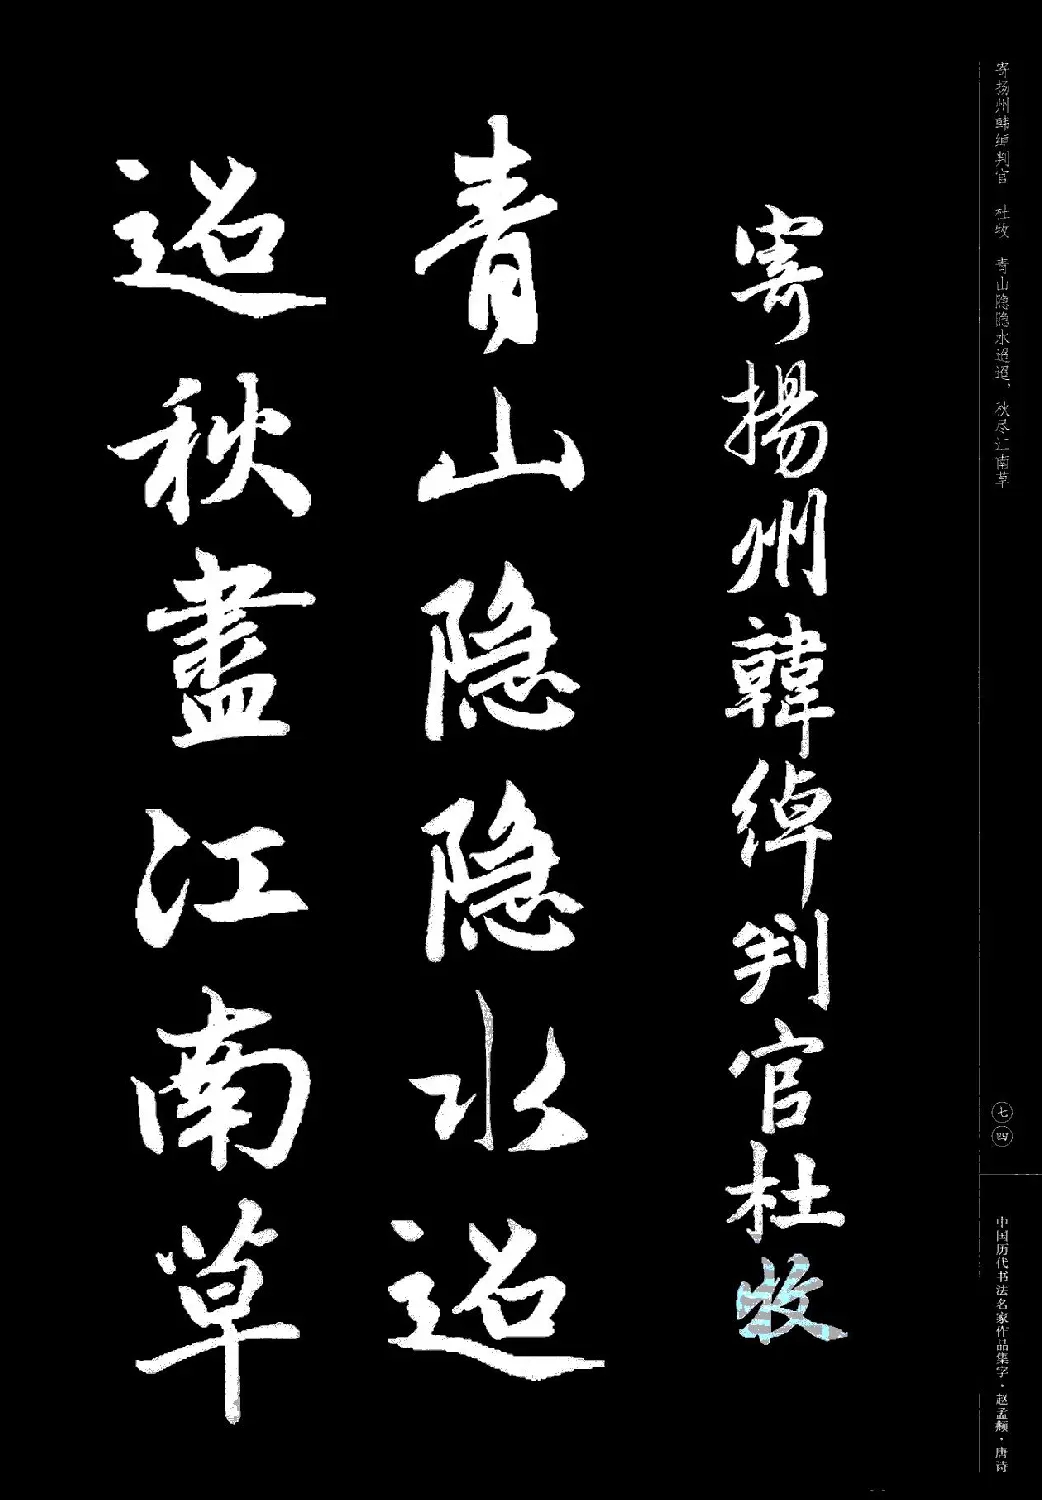 寄揚州韓綽判官杜牧
青山隐隐水迢
迢秋盡江南草
寄扬州韩绰判官 杜牧 青山隐隐水迢迢、秋尽江南草
七四
中国历代书法名家作品集字·赵孟頫·唐诗